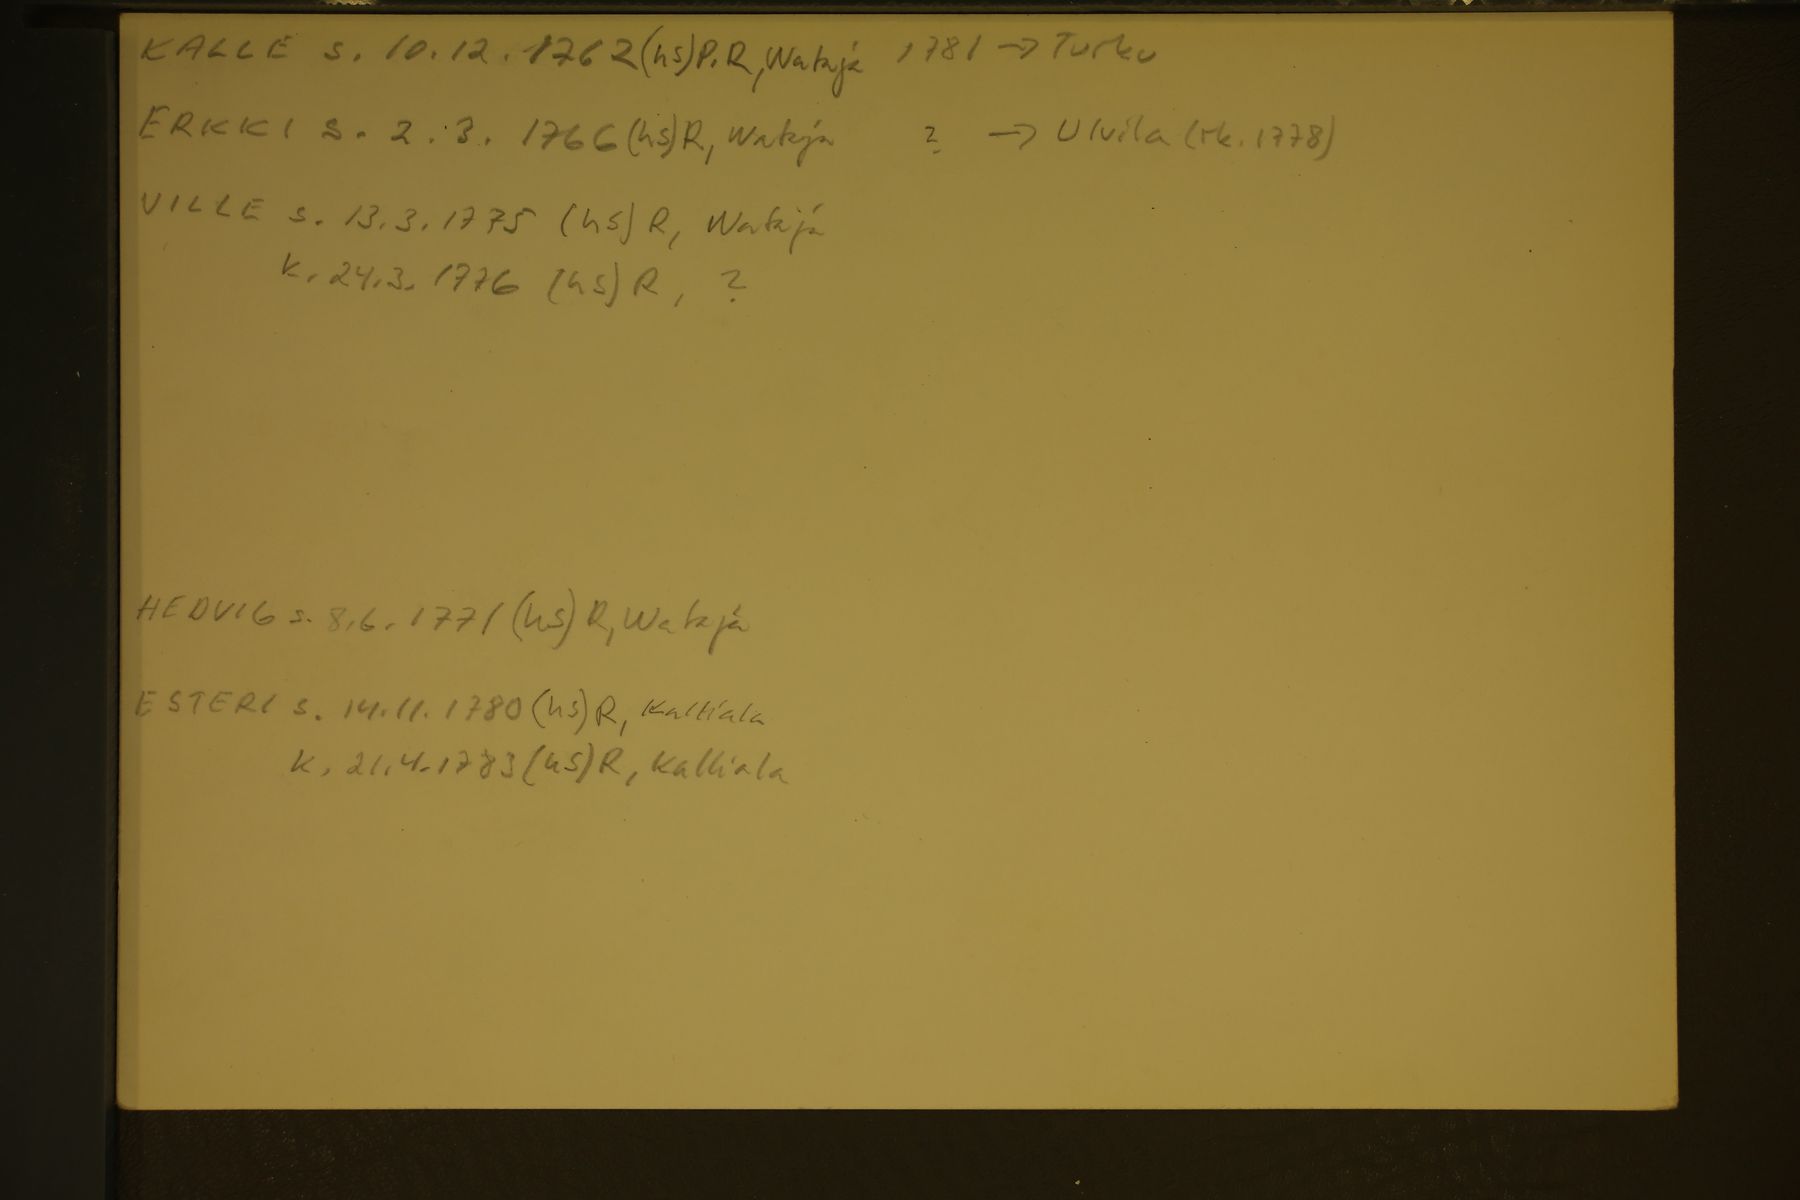 KALLE s. 10.12.1762 (hs) P.R, Watajá 1781 → Turku
ERKKI s. 2.3. 1766 (hs) R, Watajá ? → Ulvila (rk. 1778)
VILLE s. 13.3.1775 (hs) R, Watajá
k. 24.3. 1776 (hs) R, ?
HEDVIG s. 8.6. 1771 (hs) R, Watajá
ESTERI s. 14.11. 1780 (hs) R, Kalliala
k. 21.4.1783 (hs) R, Kalliala